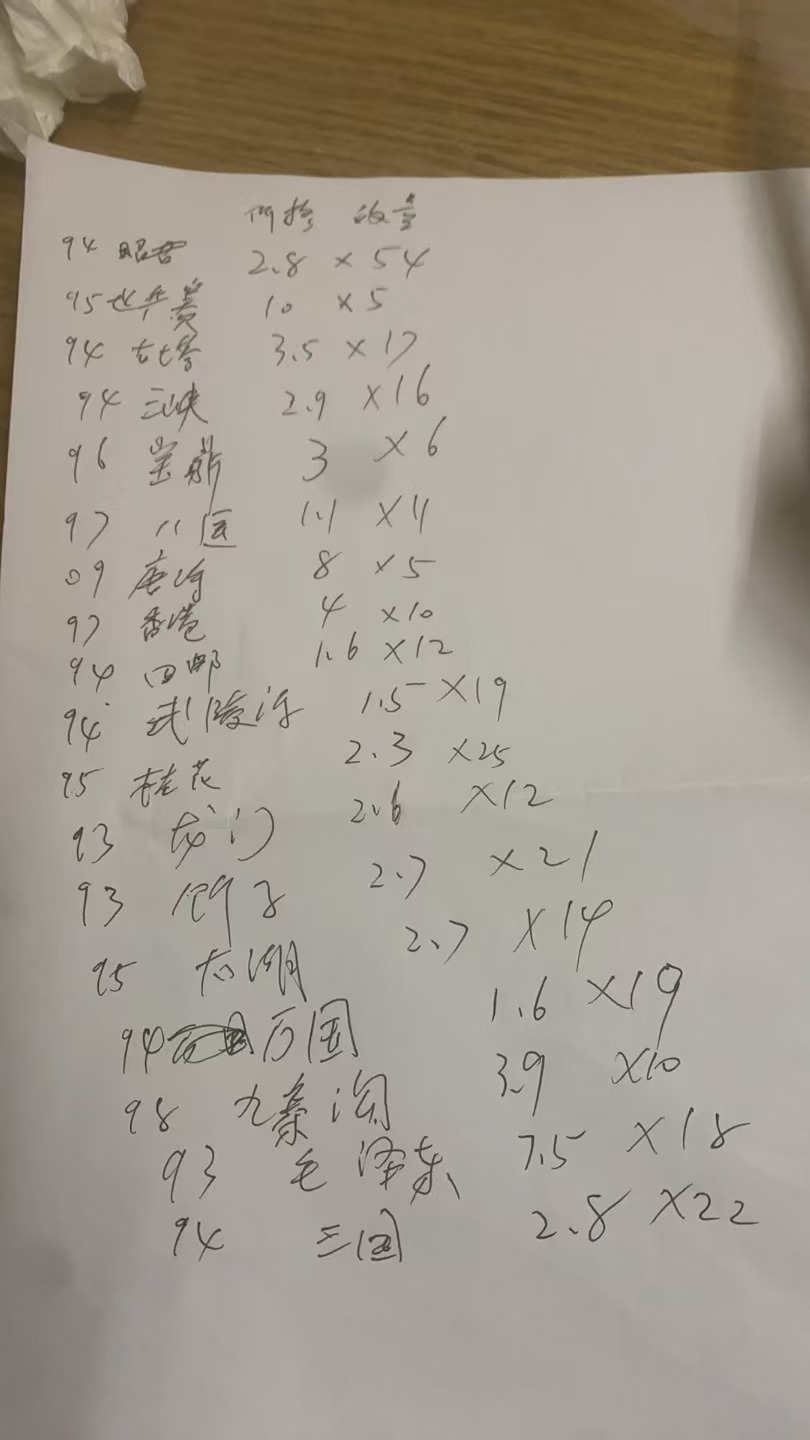 价格 数量
94 昭君 2.8 × 54
95 世乒赛 10 × 5
94 古塔 3.5 × 17
94 三峡 2.9 × 16
96 宝鼎 3 × 6
97 八运 1.1 × 4
09 唐诗 8 × 5
97 香港 4 × 10
94 回邮 1.6 × 12
94 武陵 1.5 × 19
95 桂花 2.3 × 25
93 龙门 2.6 × 12
93 2.7 × 21
95 太湖 2.7 × 14
94 万国 1.6 × 19
98 九寨沟 3.9 × 10
93 毛泽东 7.5 × 18
94 三国 2.8 × 22